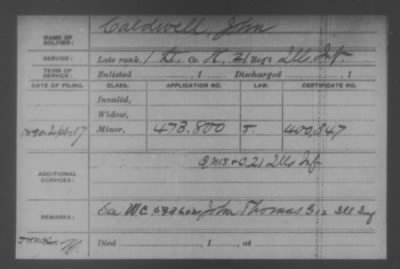 NAME OF SOLDIER: Caldwell, John
SERVICE: Late rank, 1 Lt. Co. K, 21 Reg't Ills Inf.
TERM OF SERVICE: Enlisted , 1 Discharged , 1
DATE OF FILING. CLASS. APPLICATION NO. LAW. CERTIFICATE NO.
Invalid,
Widow,
Minor, 473.800 400,347
ADDITIONAL SERVICES: 21 Ills Inf
REMARKS: See WC John Thomas Ill Inf
Died , 1 , at